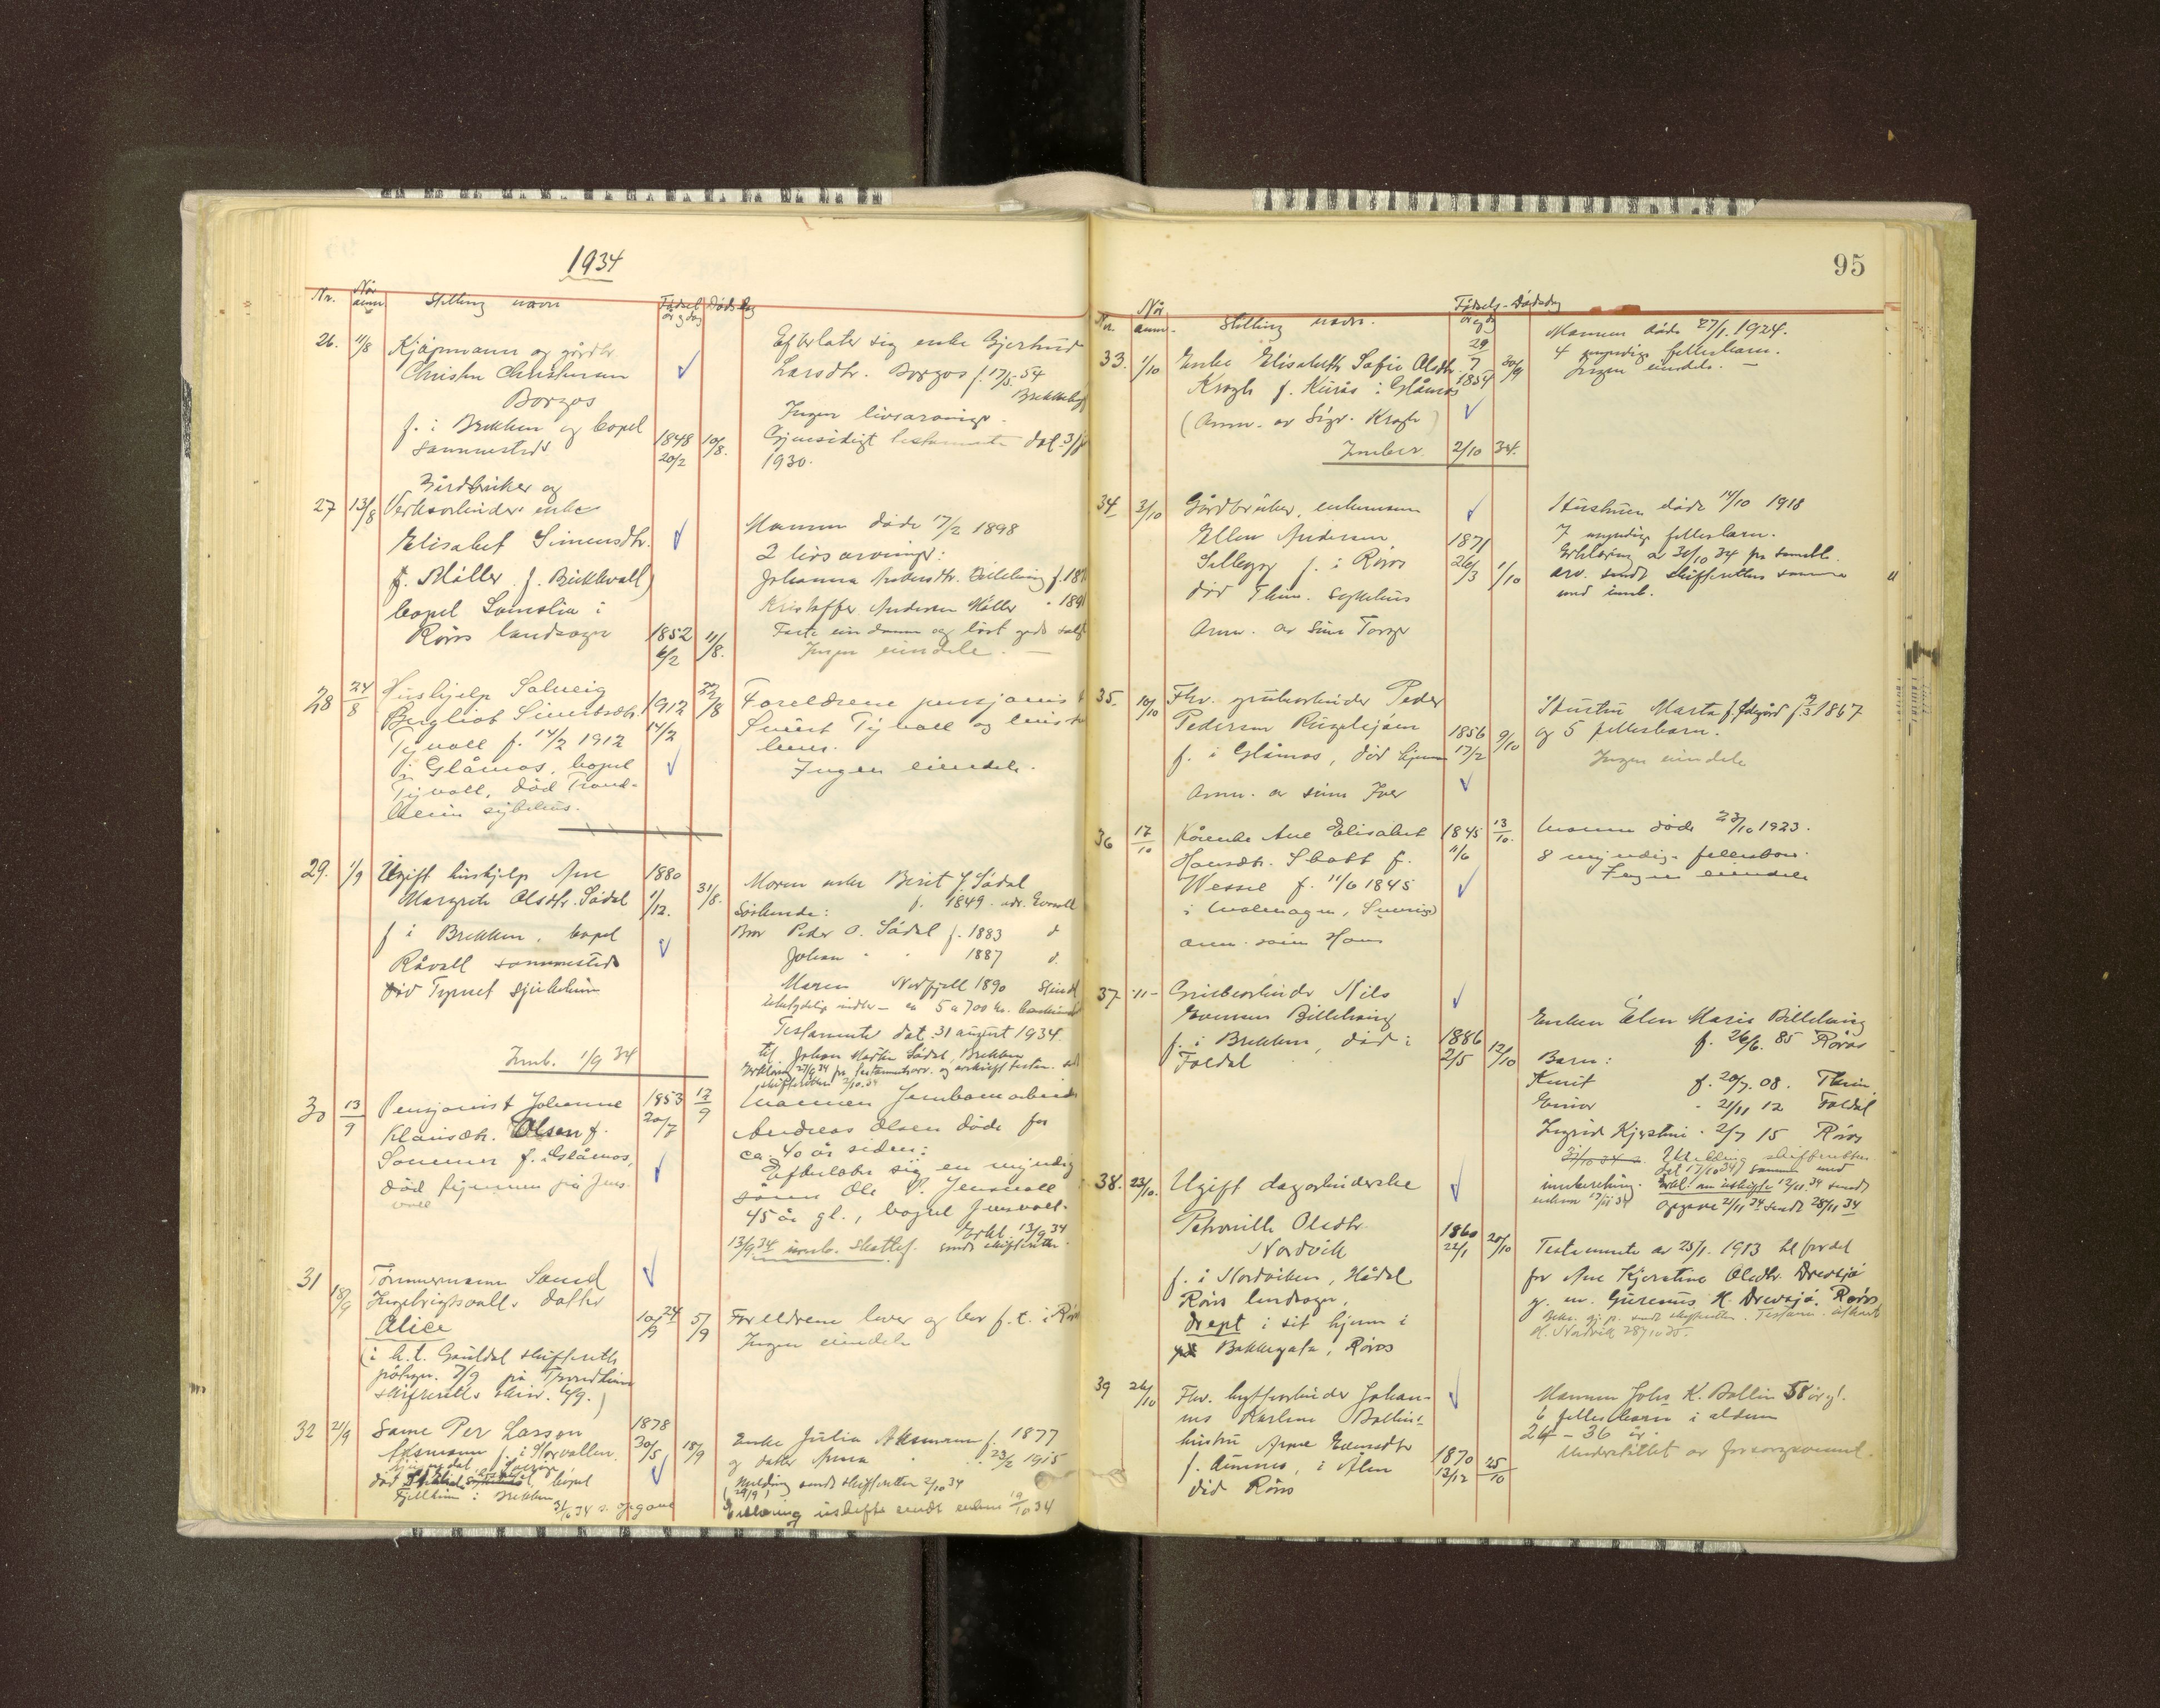 1934
Nr. Når anm. Stilling navn Fødsels år og dag Dødsdag
26. 11/8 Kjøpmann og gårdbr. Efterlater sig enke Gjertrud
Christen Christensen Larsdtr. Borgos f. 17/5-54
Borgos Brekkebygd
f. i Brekken og bopel Ingen livsarvinger.
sammesteds 1848 20/2 10/8. Gjensidigt testamente dat. 3/8
1930.
Gårdbruker og
27 13/8 Verksarbeider enke
Elisabet Simensdtr. Mannen døde 17/2 1898
f. Møller f. Bukkvoll) 2 livsarvinger:
Johanna Andersdtr. Billebing f. 18
bopel Somslia i Kristoffer Andersen Møller " 189
Røros landsogn 1852 6/2 11/8. Faste eiendom og løst gods solgt
Ingen eiendele. —
28 24/8 Hushjelp Solveig 1912 14/2 22/8 Foreldrene pensjonist
Bergliot Sivertsdtr. Sivert Tyvoll og hustru
Tyvoll f. 14/2 1912 lever.
i Glåmos, bopel Ingen eiendele.
Tyvoll, død Trond-
heim sykehus.
29. 1/9 Ugift hushjelp Ane 1880 1/12. 31/8. Moren enke Berit J. Sådal
Margrete Olsdtr. Sådal f. 1849 - adr. Evavoll
Søskende:
f i Brekken, bopel Bror Peder O. Sådal f. 1883 d
Råvoll sammesteds Johan " " 1887 d.
død Tynset sjukeheim Maren Nordfjell 1890
ubetydelig midler - ca 5 a 700 kr. bankinnsk
Testamente dat. 31 august 1934
til Johan Martin Sådal, Brekken
Innb. 1/9 34 Erklæring 27/9 34 fra testamentsarv. og avskrift testam. sendt
skifteretten 2/10.34
30 13/9 Pensjonist Johanne 1853 20/7 12/9 Mannen Jernbanearbeider
Klausdtr. Olsen f. Andreas Olsen døde for
Sommer f. Glåmos, ca. 40 år siden.
død hjemme på Jens- Efterlater sig en myndig
voll sønn Ole P. Jensvoll
45 år gl., bopel Jensvoll.
Erkl. 13/9 34
13/9 34 innb. skattef. sendt skifteretten.
31 18/9 Tømmermann Saml
Ingebrigtsvoll's datter
Alice 10/9 24 5/9 Foreldrene lever og bor f.t. i Røros
(i h.t. Gauldal skifteretts Ingen eiendele
påtegn. 7/9 på Trondheim
skifteretts skriv. 6/9.)
32 21/9 Same Per Larsson 1878 30/5 18/9 Enke Julia Aksmann f. 1877
Aksmann f. i Storvallen og datter Anna " f. 23/2 1915
død bopel (Melding sendt skifteretten 2/10 34
Fjellheim i Brekken 29/9)
opgave Erklæring uskifte sendt enken 19/10 34
95
Nr. Når anm. Stilling navn. Fødsels- år og dag Dødsdag
33. 1/10 Enke Elisabeth Sofie Olsdtr. 29/7 1854 30/9 Mannen døde 27/1. 1924.
Krogh f. Kurås i Glåmos 4 myndige fellesbarn.
(Anm. av Sigr. Krogh) Ingen eiendele. —
Innber. 2/10 34.
34 3/10 Gårdbruker, enkemann Hustruen døde 14/10 1918
Ellen Andersen 7 myndige fellesbarn.
f. i Røros 1871 26/3 1/10 Erklæring av 30/10 34 fra samtl.
død Thm. sykehus arv. sendt skifteretten samme
med innb.
Anm. av sønn
35. 10/10 Fhv. grubearbeider Peder Hustru Marta f. Ødegård f. 2/3 1867
Pedersen Ruglsjøen 1856 17/2 9/10 og 5 fellesbarn.
f. i Glåmos, død hjemme Ingen eiendele
Anm. av sønn Iver
36 17/10 Kårenke Ane Elisabet 1845 11/6 13/10. Mannen døde 23/10 1923.
Hansdtr. Skott f. 8 myndige fellesbarn.
Wessel f. 11/6 1845 Ingen eiendele
i Malmagen, Sverige
anm. sønn Hans
37 -"- Grubearbeider Nils
Evensen Billebing Enken Elen Marie Billebing
f. i Brekken, død i 1886 2/5 12/10 f. 26/6. 85 Røros
Foldal Barn:
Knut f. 20/7. 08. Thm
Einar " 21/11 12 Foldal
Ingrid Kjerstine " 2/7 15 Røros
Utmelding skifteretten
dat 17/10 34 sammen med
innberetning. Erkl. om uskifte 12/11 34 sendt
enken 17/11 34 Opgave 21/11 34 sendt 28/11 34
38. 23/10. Ugift dagarbeiderske
Petronille Olsdtr. 1860 22/1 20/10 Testamente av 25/1. 1913 til fordel
Nordvik for Ane Kjerstine Olsdtr. Drevsjø
f. i Nordviken, Hådal g. m. Gurenius H. Drevsjø. Røros
Røros landsogn,
drept i sit hjem i
Bakkegata, Røros
39 26/10 Fhv. hyttearbeider Johan- Mannen Johs K. Bollin 58 år gl.
nes Karlsen Bollins 6 fellesbarn i alderen
hustru Anne Evensdtr 24 - 36 år.
f. Aunes, i Ålen 1870 12/12 25/10 Understøttet av forsorgsvesenet.
død Røros